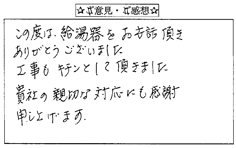 ☆ご意見・ご感想☆
この度は、給湯器をお世話頂き
ありがとうございました
工事もキチンとして頂きました
貴社の親切な対応にも感謝
申し上げます。